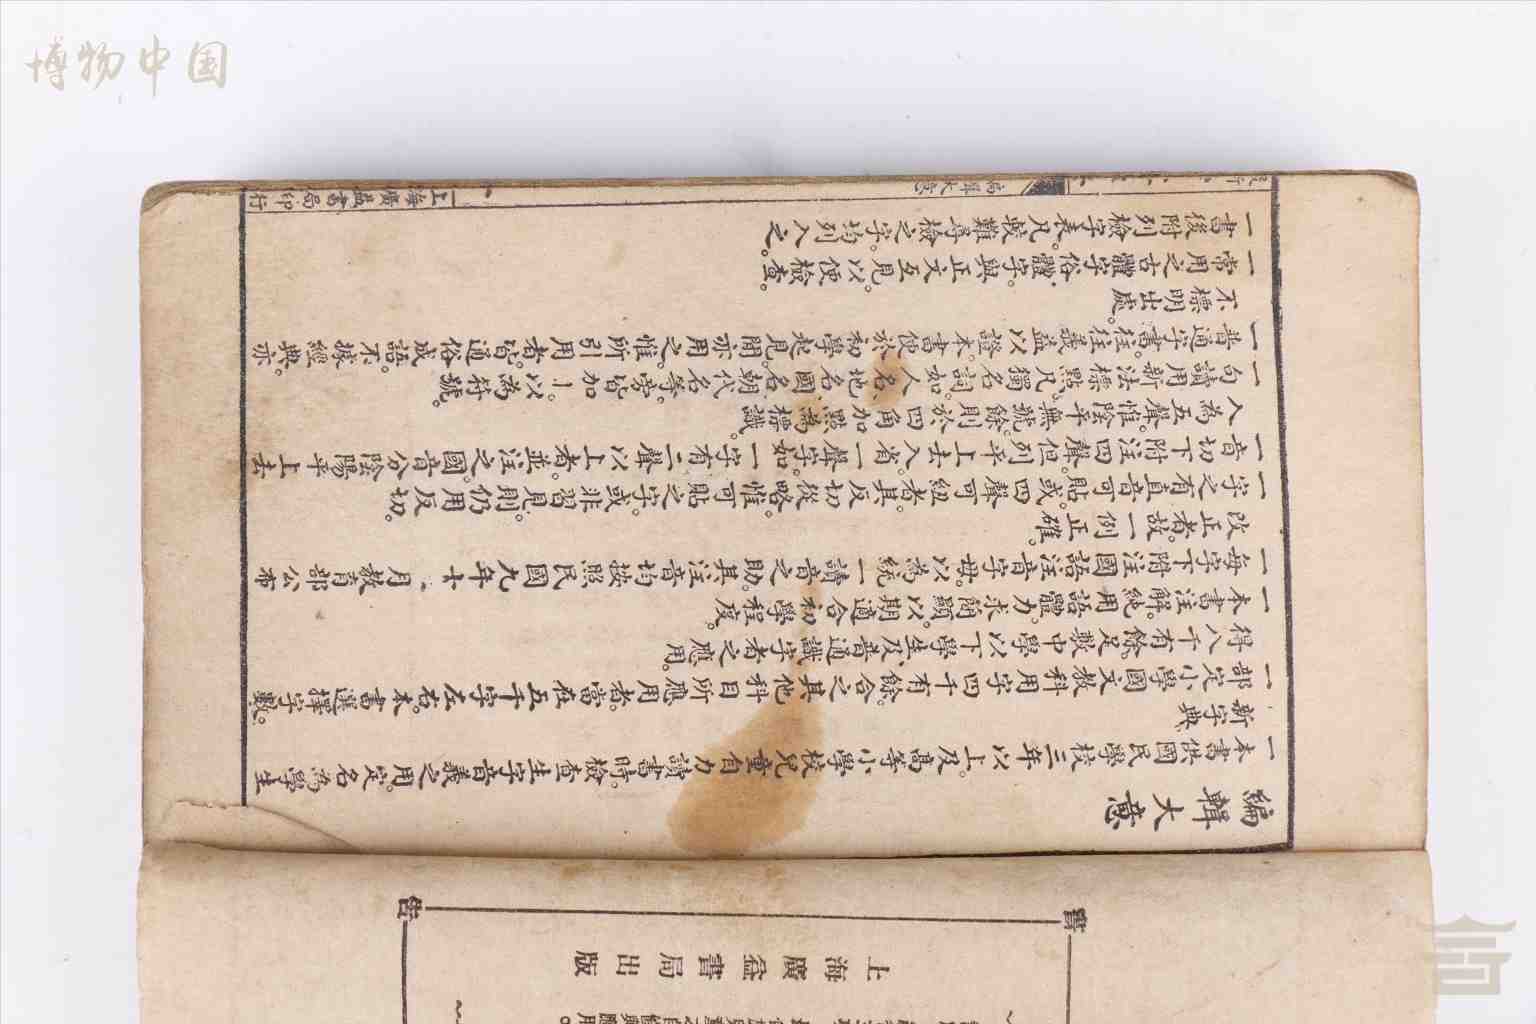 博物中国
編輯大意
一本書供國民學校三年以上及高等小學校兒童自力讀書時。檢查生字音義之用。定名為學生
新字典。
一部定小學國文教科用字四千有餘。合之其他科目所應用者。當在五千字左右。本書選擇字數。
得八千有餘。足敷中學以下學生及普通識字者之應用。
一本書注解。純用語體。力求簡顯。以期適合初學程度。
一每字下附注國語注音字母。以為統一讀音之助。其注音均按照民國九年十二月教育部公布
改正者。故一例正確。
一字之有直音可貼。或四聲可紐者。其反切從略。惟可貼之字。或非習見。則仍用反切。
一音切下附注四聲。但列平上去入一省聲字。如一字有二聲以上者。並注之。國音分陰陽平上去
入為五聲。惟陰平無號。餘則於四角加點為標識。
一句讀用新法標點。凡獨名詞。如人名、地名、國名、朝代名等。旁皆加｜。以為符號。
一普通字書。往往義以益證。本書便於初學起見。間亦用之。惟所引用者。皆通俗成語。不據經典。亦
不標明出處。
一常用之古體字、俗體字。與正文互見。以便檢查。
一書後附列檢字表。凡較難尋檢之字。均列入之。
編輯大意
一
上海廣益書局印行
上海廣益書局出版